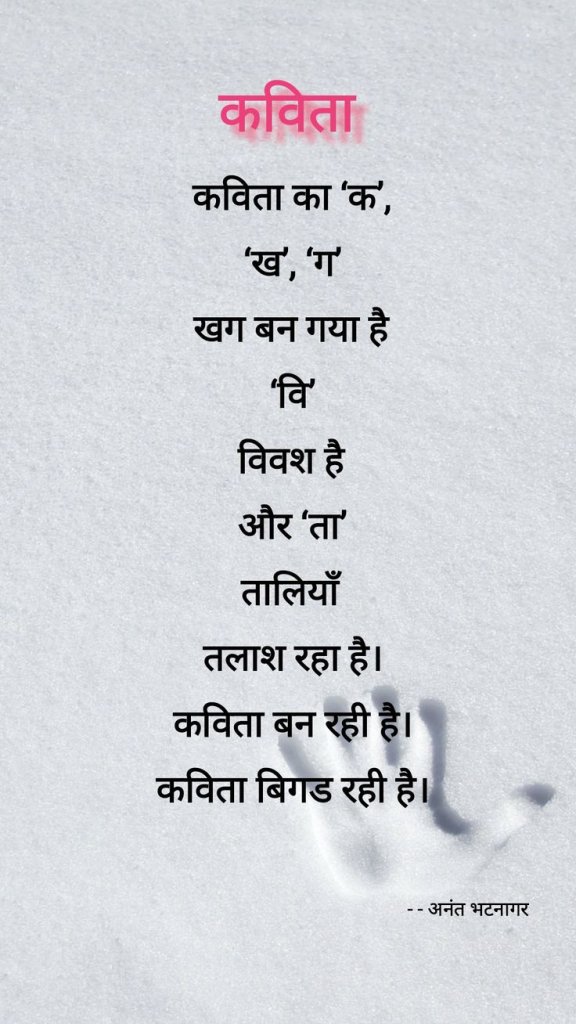 कविता
कविता का ‘क’,
‘ख’, ‘ग’
खग बन गया है
‘वि’
विवश है
और ‘ता’
तालियाँ
तलाश रहा है।
कविता बन रही है।
कविता बिगड रही है।
-- अनंत भटनागर